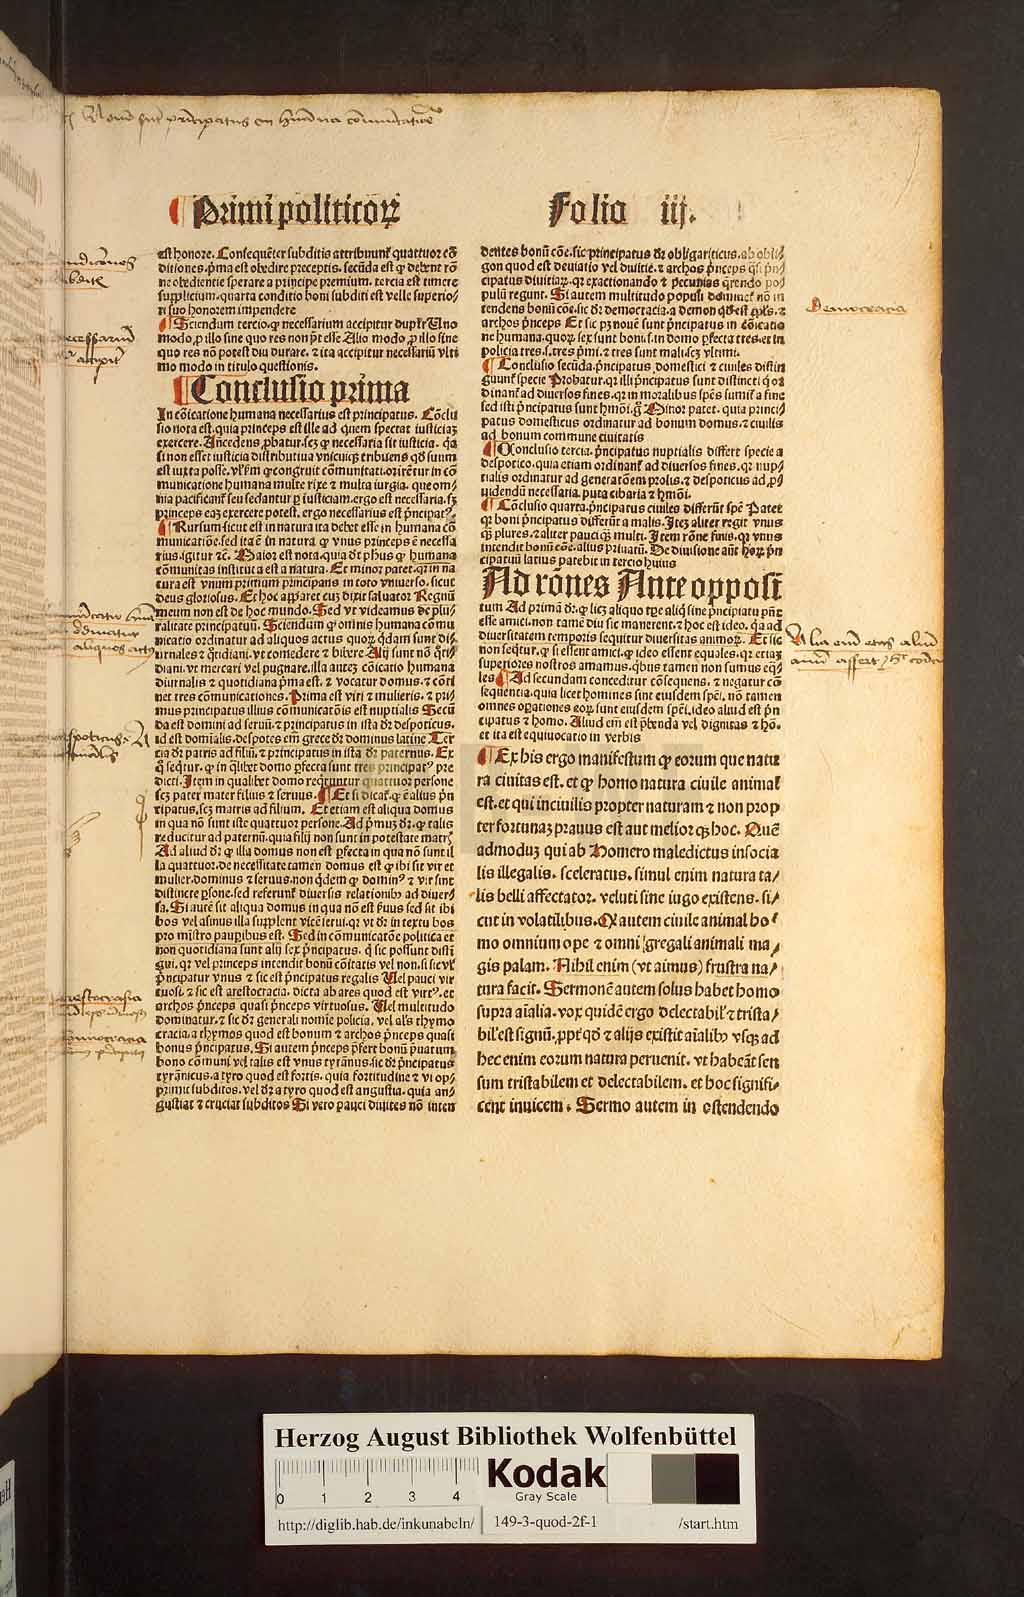 Primi politicoꝝ
Folia iij.
est honore. Consequẽter subditis attribuunt᷑ quattuor cõ
ditiones. p̃ma est obedire preceptis. secũda est ꝙ debent rõ
ne obedientie sperare a principe premium. tercia est timere
supplicium. quarta conditio boni subditi est velle superio⸗
ri suo honorem impendere
Sciendum tercio. ꝙ necessarium accipitur dupl'r Uno
modo ꝓ illo sine quo res non p̃t esse Alio modo ꝓ illo sine
quo res nõ potest diu durare. ⁊ ita accipitur necessariũ vlti
mo modo in titulo questionis.
Conclusio prima
In cõicatione humana necessarius est principatus. Cõclu
sio nota est. quia princeps est ille ad quem spectat iusticiaȝ
exercere. Ancedens ꝓbatur. scȝ ꝙ necessaria sit iusticia. q̃a
si non esset iusticia distributiua vnicuiqȝ tribuens qd̃ suum
est iuxta posse. vl'km̃ ꝙ congruit cõmunitati. orirẽtur in cõ
municatione humana multe rixe ⁊ multa iurgia. que om⸗
nia pacificant᷑ seu sedantur ꝑ iusticiam. ergo est necessaria. sȝ
princeps eaȝ exercere potest. ergo necessarius est p̃ncipatꝰ.
Rursum sicut est in natura ita debet esse in humana cõ
municatiõe. sed ita ẽ in natura ꝙ vnus princeps ẽ necessa
rius. igitur ⁊c̃. Maior est nota. quia d̃t phus ꝙ humana
cõmunitas instituta est a natura. Et minor patet. qr in na
tura est vnum primum principans in toto vniuerso. sicut
deus gloriosus. Et hoc apparet cuȝ dixit saluator Regnũ
meum non est de hoc mundo. Sed vt videamus de plu⸗
ralitate principatuũ. Sciendum ꝙ omnis humana cõmu
nicatio ordinatur ad aliquos actus quoꝝ q̃dam sunt di⸗
urnales ⁊ q̃tidiani. vt comedere ⁊ bibere Alij sunt nõ q̃ti⸗
diani. vt mercari vel pugnare. illa auteȝ cõicatio humana
diurnalis ⁊ quotidiana p̃ma est. ⁊ vocatur domus. ⁊ cõti
net tres cõmunicationes. Prima est viri ⁊ mulieris. ⁊ pri⸗
mus principatus illius cõmunicatiõis est nuptialis Secũ
da est domini ad seruũ. ⁊ principatus in ista dr̃ despoticus.
id est domĩalis. despotes em̃ grece dr̃ dominus latine Ter
cia dr̃ patris ad filiũ. ⁊ principatus in ista dr̃ paternus. Ex
q̃ seq̃tur. ꝙ in q̃libet domo ꝑfecta sunt tres principatꝰ pre
dicti. Item in qualibet domo reqruntur quattuor persone
scȝ pater mater filius ⁊ seruus. Et si dicat᷑. ꝙ ẽ alius p̃n
cipatus. scȝ matris ad filium. Et etiam est aliqua domus
in qua nõ sunt iste quattuor persone. Ad p̃mũȝ dr̃. ꝙ talis
reducitur ad paternũ. quia filij non sunt in potestate matr̃
Ad aliud dr̃ ꝙ illa domus non est ꝑfecta in qua nõ sunt il
la quattuor. de necessitate tamen domus est ꝙ ibi sit vir et
mulier. dominus ⁊ seruus. non q̃dem ꝙ dominꝰ ⁊ vir sint
distincte ꝑsone. sed referunt᷑ diuersis relationibꝰ ad diuer⸗
sa. Si autẽ sit aliqua domus in qua nõ est seruus sed sit ibi
bos vel asinus illa supplent vicẽ serui. qr vt dr̃ in textu bos
pro ministro pauꝑibus est. Sed in cõmunicatiõe politica et
non quotidiana sunt alij sex p̃ncipatus. q̃ sic possunt disti
gui. qr vel princeps intendit bonũ cõitatis vel non. si sic vl'
p̃ncipatur vnus ⁊ sic est p̃ncipatus regalis Uel pauci vir
tuosi. ⁊ sic est arestocracia. dicta ab ares quod est virtꝰ. et
archos p̃nceps quasi p̃nceps virtuosus. Uel multitudo
dominatur. ⁊ sic dr̃ generali nomĩe policia. vel al's thymo
cracia. a thymos quod est bonum ⁊ archos p̃nceps quasi
bonus p̃ncipatus. Si autem p̃nceps p̃fert bonũ p̃uatum
bono cõmuni vel talis est vnus tyrãnus. sic dr̃ p̃ncipatus
tyrãnicus. a tyro quod est fortis. quia fortitudine ⁊ vi op⸗
primit subditos. vel dr̃ a tyro quod est angustia. quia an⸗
gustiat ⁊ cruciat subditos Si vero pauci diuites nõ inten
dentes bonũ cõe. sic principatus dr̃ obligariticus. ab obli⸗
gon quod est deuiatio vel diuitie. ⁊ archos p̃nceps q̃si p̃n⸗
cipatus diuitiaꝝ. qr exactionando ⁊ pecunias q̃rendo po⸗
pulũ regunt. Si autem multitudo populi dominet᷑ nõ in
tendens bonũ cõe. sic dr̃ democracia. a demon qd̃ est ppl's. ⁊
archos p̃nceps Et sic pȝ nouẽ sunt p̃ncipatus in cõicatio
ne humana. quoꝝ sex sunt boni. s. in domo ꝑfecta tres. et in
policia tres. s. tres p̃mi. ⁊ tres sunt mali. scȝ vltimi.
Conclusio secũda. p̃ncipatus domestici ⁊ ciuiles distin
guunt᷑ specie Probatur. qr illi p̃ncipatus sunt distincti q̃ or
dinant᷑ ad diuersos fines. qr in moralibus spẽs sumit᷑ a fine
sed isti p̃ncipatus sunt hmõi. g̃ Minor patet. quia princi⸗
patus domesticus ordinatur ad bonum domus. ⁊ ciuilis
ad bonum commune ciuitatis
Cõclusio tercia. p̃ncipatus nuptialis differt specie a
despotico. quia etiam ordinant᷑ ad diuersos fines. qr nup⸗
tialis ordinatur ad generatõem prolis. ⁊ despoticus ad ꝓ⸗
uidendũ necessaria. puta cibaria ⁊ hmõi.
Cõclusio quarta. p̃ncipatus ciuiles differũt spẽ Patet
qr boni p̃ncipatus differũt a malis. Iteȝ aliter regit vnus
qȝ plures. ⁊ aliter pauci qȝ multi. Item rõne finis. qr vnus
intendit bonũ cõe. alius priuatũ. De diuisione aũt hoꝝ p̃n
cipatuũ latius patebit in tercio huius
Ad rões Ante opposi
tum Ad primã dr̃. ꝙ licȝ aliquo tꝑe aliq̃ sine p̃ncipatu pñt
esse amici. non tamẽ diu sic manerent. ⁊ hoc est ideo. q̃a ad
diuersitatem temporis sequitur diuersitas animoꝝ. Et sic
non seq̃tur. ꝙ si essent amici. ꝙ ideo essent equales. qr etiaȝ
superiores nostros amamus. q̃bus tamen non sumus eq̃⸗
les Ad secundam conceditur cõsequens. ⁊ negatur cõ
sequentia. quia licet homines sint eiusdem spẽi. nõ tamen
omnes oꝑationes eoꝝ sunt eiusdem spẽi. ideo aliud est p̃n
cipatus ⁊ homo. Aliud em̃ est p̃benda vel dignitas ⁊ hõ.
et ita est equiuocatio in verbis
Ex his ergo manifestum ꝙ eorum que natu
ra ciuitas est. et ꝙ homo natura ciuile animal
est. et qui inciuilis propter naturam ⁊ non prop
ter fortunaȝ prauus est aut melior qȝ hoc. Quẽ
admoduȝ qui ab Homero maledictus insocia
lis illegalis. sceleratus. simul enim natura ta⸗
lis belli affectator. veluti sine iugo existens. si⸗
cut in volatilibus. Qr autem ciuile animal ho⸗
mo omnium ope ⁊ omni gregali animali ma⸗
gis palam. Nihil enim (vt aimus) frustra na⸗
tura facit. Sermonẽ autem solus habet homo
supra aĩalia. vox quidẽ ergo delectabil' ⁊ trista⸗
bil' est signũ. ꝓpt' qd̃ ⁊ alijs existit aĩalibꝰ vsqȝ ad
hec enim eorum natura peruenit. vt habeãt sen
sum tristabilem et delectabilem. et hoc signifi⸗
cent inuicem. Sermo autem in ostendendo
Democracia
arestocrasia
Herzog August Bibliothek Wolfenbüttel
0 1 2 3 4
Kodak
Gray Scale
http://diglib.hab.de/inkunabeln/ 149-3-quod-2f-1 /start.htm